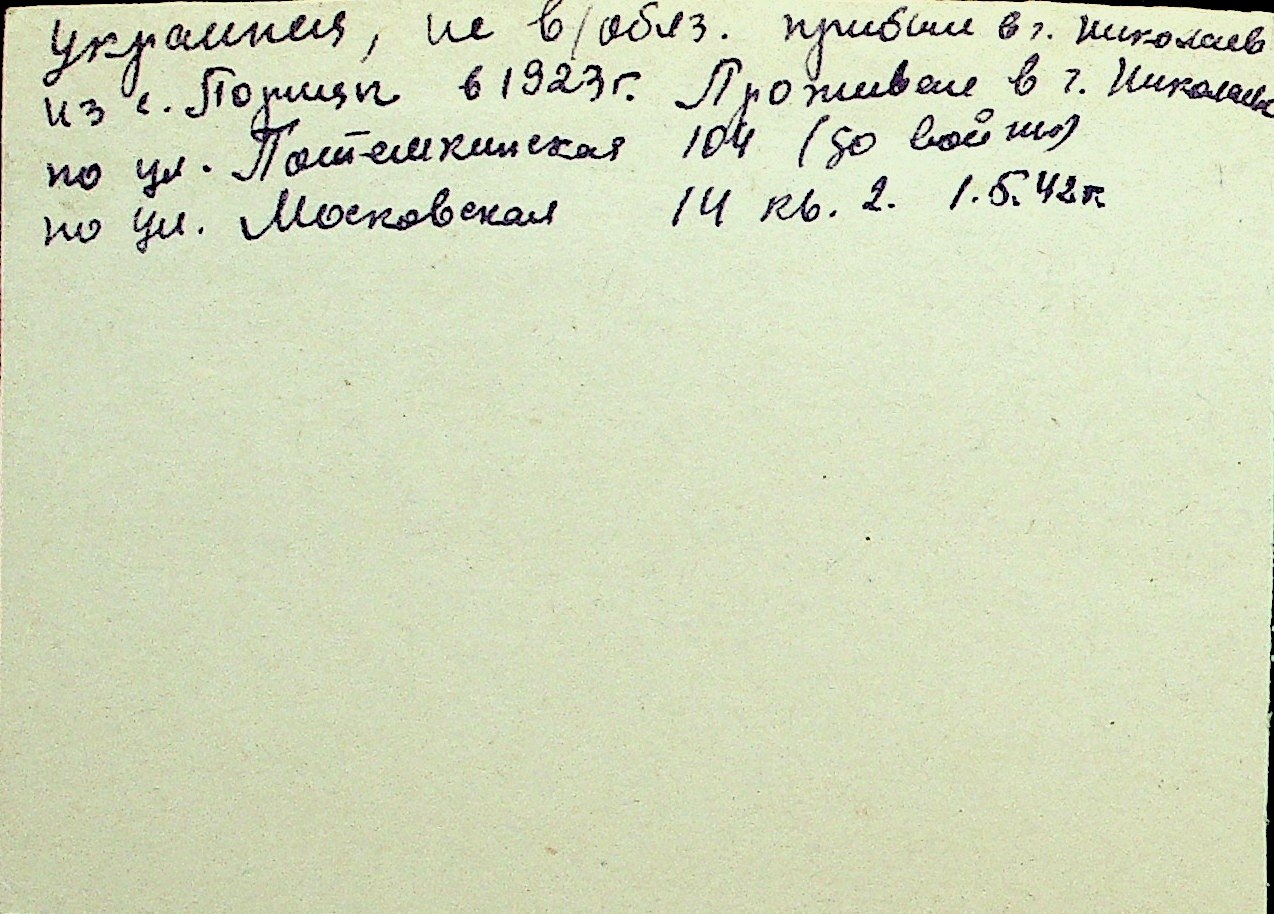 украинец, не в/обяз. прибыл в г. Николаев
из с. в 1923г. Проживал в г. Николаев
по ул. Потемкинская 104 (до войны)
по ул. Московская 14 кв. 2. 1.5.42г.